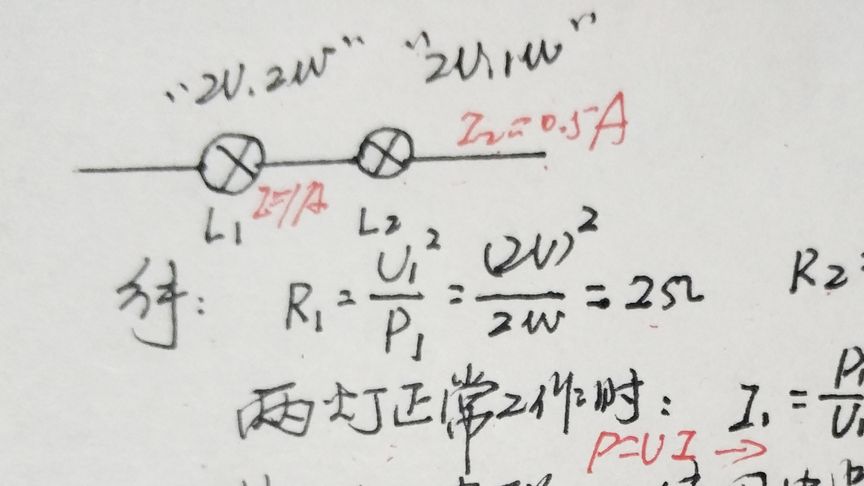 “2V.2W” “2V,1W”
I₂=0.5A
I=1A
L₁ L₂
解: R₁ = U₁²/P₁ = (2V)²/2W = 2Ω R₂
两灯正常工作时: I₁ = P₁/U₁
P=UI →